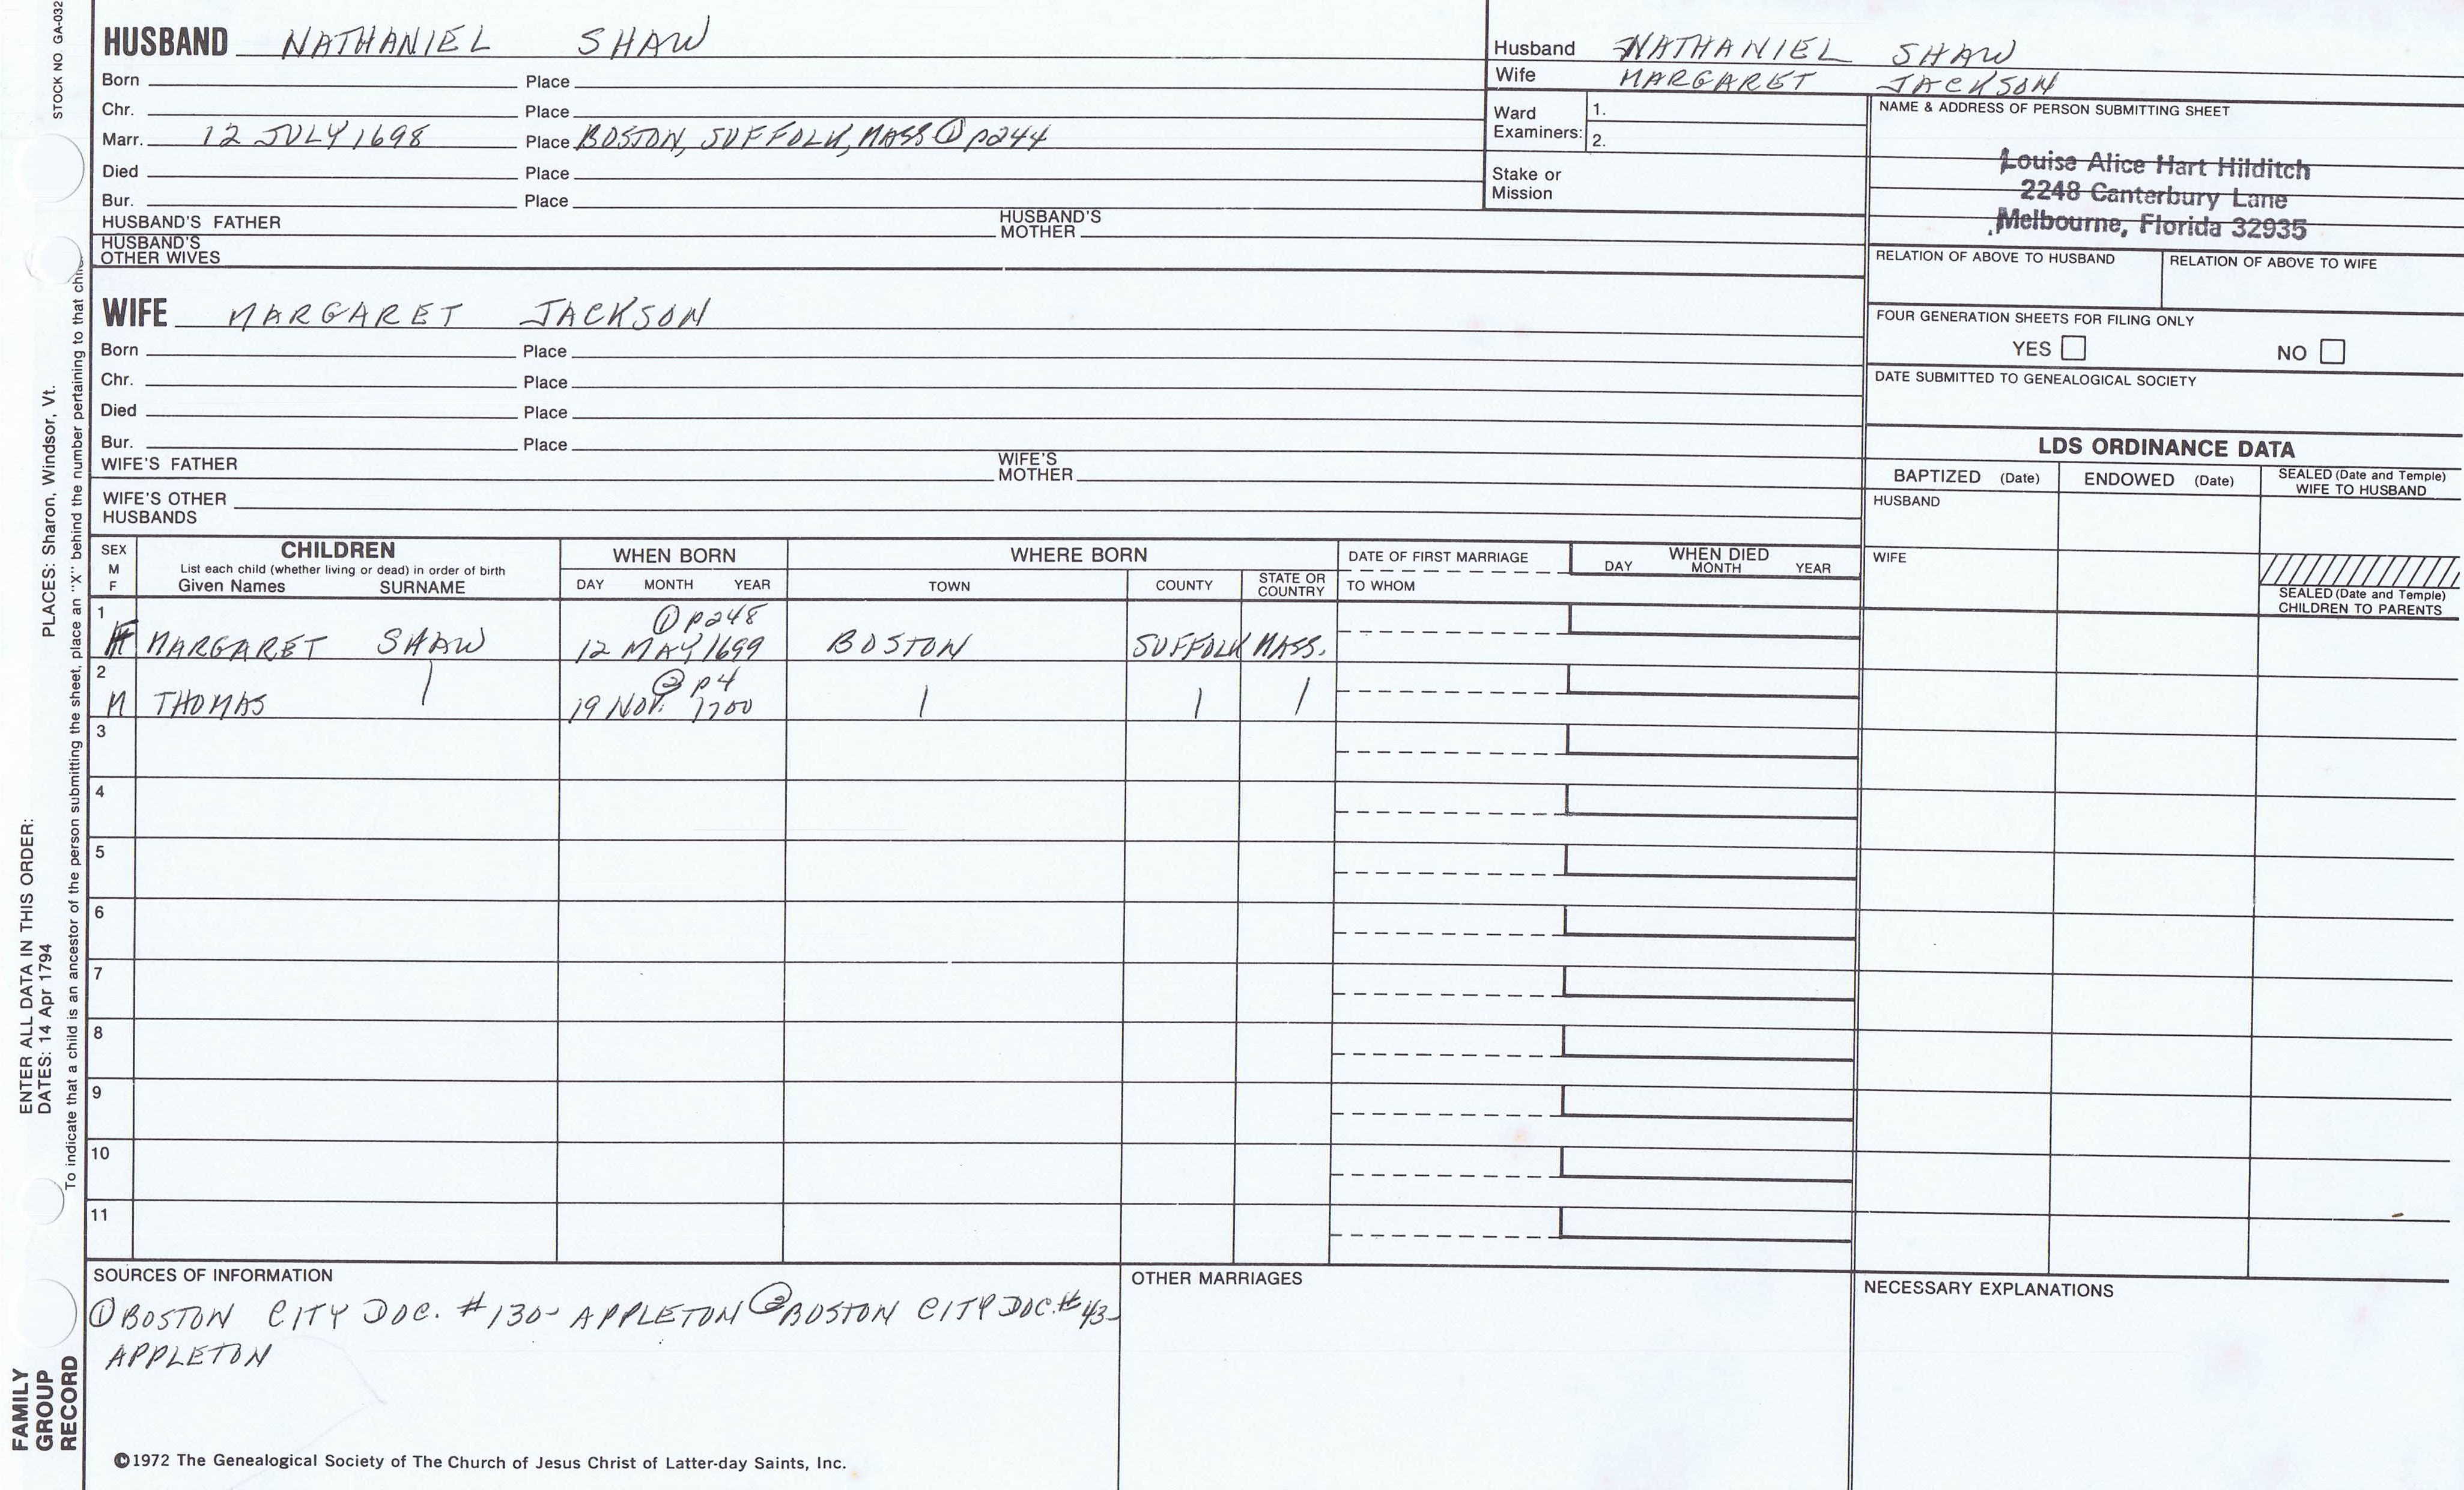 STOCK NO. GA-032
PLACES: Sharon, Windsor, Vt.
ENTER ALL DATA IN THIS ORDER:
DATES: 14 Apr 1794
To indicate that a child is an ancestor of the person submitting the sheet, place an "X" behind the number pertaining to that child
FAMILY
GROUP
RECORD
HUSBAND NATHANIEL SHAW
Born Place
Chr. Place
Marr. 12 JULY 1698 Place BOSTON, SUFFOLK, MASS ① p244
Died Place
Bur. Place
HUSBAND'S FATHER HUSBAND'S MOTHER
HUSBAND'S
OTHER WIVES
Husband NATHANIEL SHAW
Wife MARGARET JACKSON
Ward
Examiners:
1.
2.
Stake or
Mission
NAME & ADDRESS OF PERSON SUBMITTING SHEET
Louise Alice Hart Hilditch
2248 Canterbury Lane
Melbourne, Florida 32935
RELATION OF ABOVE TO HUSBAND RELATION OF ABOVE TO WIFE
FOUR GENERATION SHEETS FOR FILING ONLY
YES NO
DATE SUBMITTED TO GENEALOGICAL SOCIETY
WIFE MARGARET JACKSON
Born Place
Chr. Place
Died Place
Bur. Place
WIFE'S FATHER WIFE'S MOTHER
WIFE'S OTHER
HUSBANDS
LDS ORDINANCE DATA
BAPTIZED (Date) ENDOWED (Date) SEALED (Date and Temple) WIFE TO HUSBAND
HUSBAND
WIFE
SEALED (Date and Temple)
CHILDREN TO PARENTS
SEX
M
F
CHILDREN
List each child (whether living or dead) in order of birth
Given Names SURNAME
WHEN BORN
DAY MONTH YEAR
WHERE BORN
TOWN COUNTY STATE OR COUNTRY
DATE OF FIRST MARRIAGE
TO WHOM
WHEN DIED
DAY MONTH YEAR
1 ① p248
F MARGARET SHAW 12 MAY 1699 BOSTON SUFFOLK MASS.
2 ② p4
M THOMAS | 19 NOV. 1700 | | |
3
4
5
6
7
8
9
10
11
SOURCES OF INFORMATION
① BOSTON CITY DOC. #130- APPLETON ② BOSTON CITY DOC. #43-
APPLETON
OTHER MARRIAGES
NECESSARY EXPLANATIONS
©1972 The Genealogical Society of The Church of Jesus Christ of Latter-day Saints, Inc.